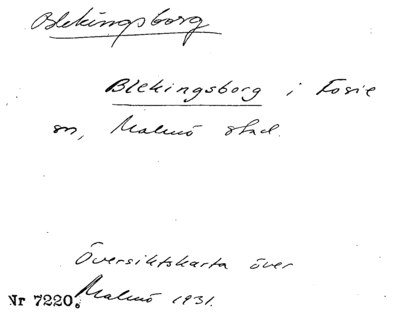 Blekingsborg
Blekingsborg i Fosie
sn, Malmö stad.
Översiktskarta över
Nr 7220. Malmö 1931.